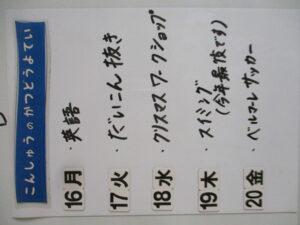 こんしゅうのかつどうよてい
16月 ・英語
17火 ・だいこん抜き
18水 ・クリスマスワークショップ
19木 ・スイミング
(今年最後です)
20金 ・ベルマーレサッカー